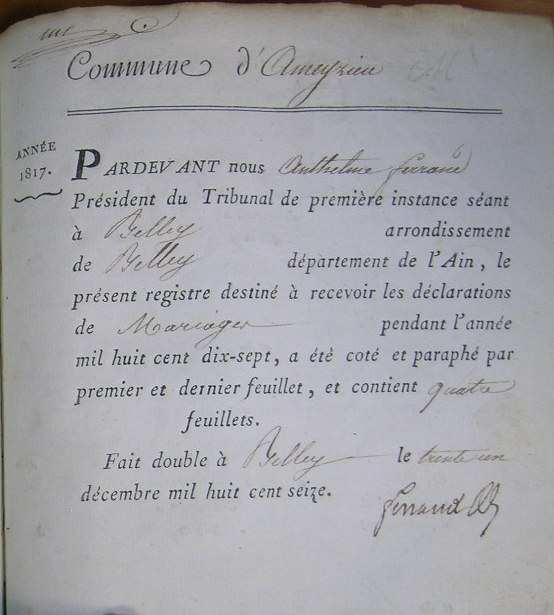 une
Commune d'Ameyzieu
ANNÉE
1817.
PARDEVANT nous Anthelme Ferrand
Président du Tribunal de première instance séant
à Belley arrondissement
de Belley département de l'Ain, le
présent registre destiné à recevoir les déclarations
de Mariages pendant l'année
mil huit cent dix-sept, a été coté et paraphé par
premier et dernier feuillet, et contient quatre
feuillets.
Fait double à Belley le trente un
décembre mil huit cent seize.
Ferrand